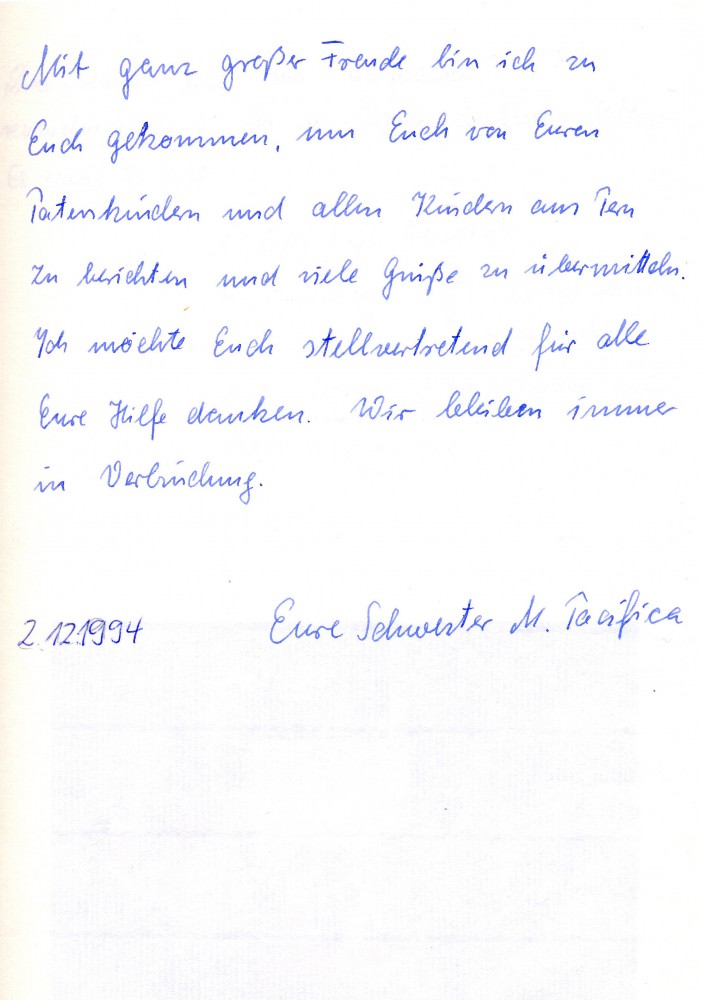 Mit ganz großer Freude bin ich zu
Euch gekommen, um Euch von Euren
Patenkindern und allen Kindern aus Peru
zu berichten und viele Grüße zu übermitteln.
Ich möchte Euch stellvertretend für alle
Eure Hilfe danken. Wir bleiben immer
in Verbindung.
2.12.1994 Eure Schwester M. Pacifica